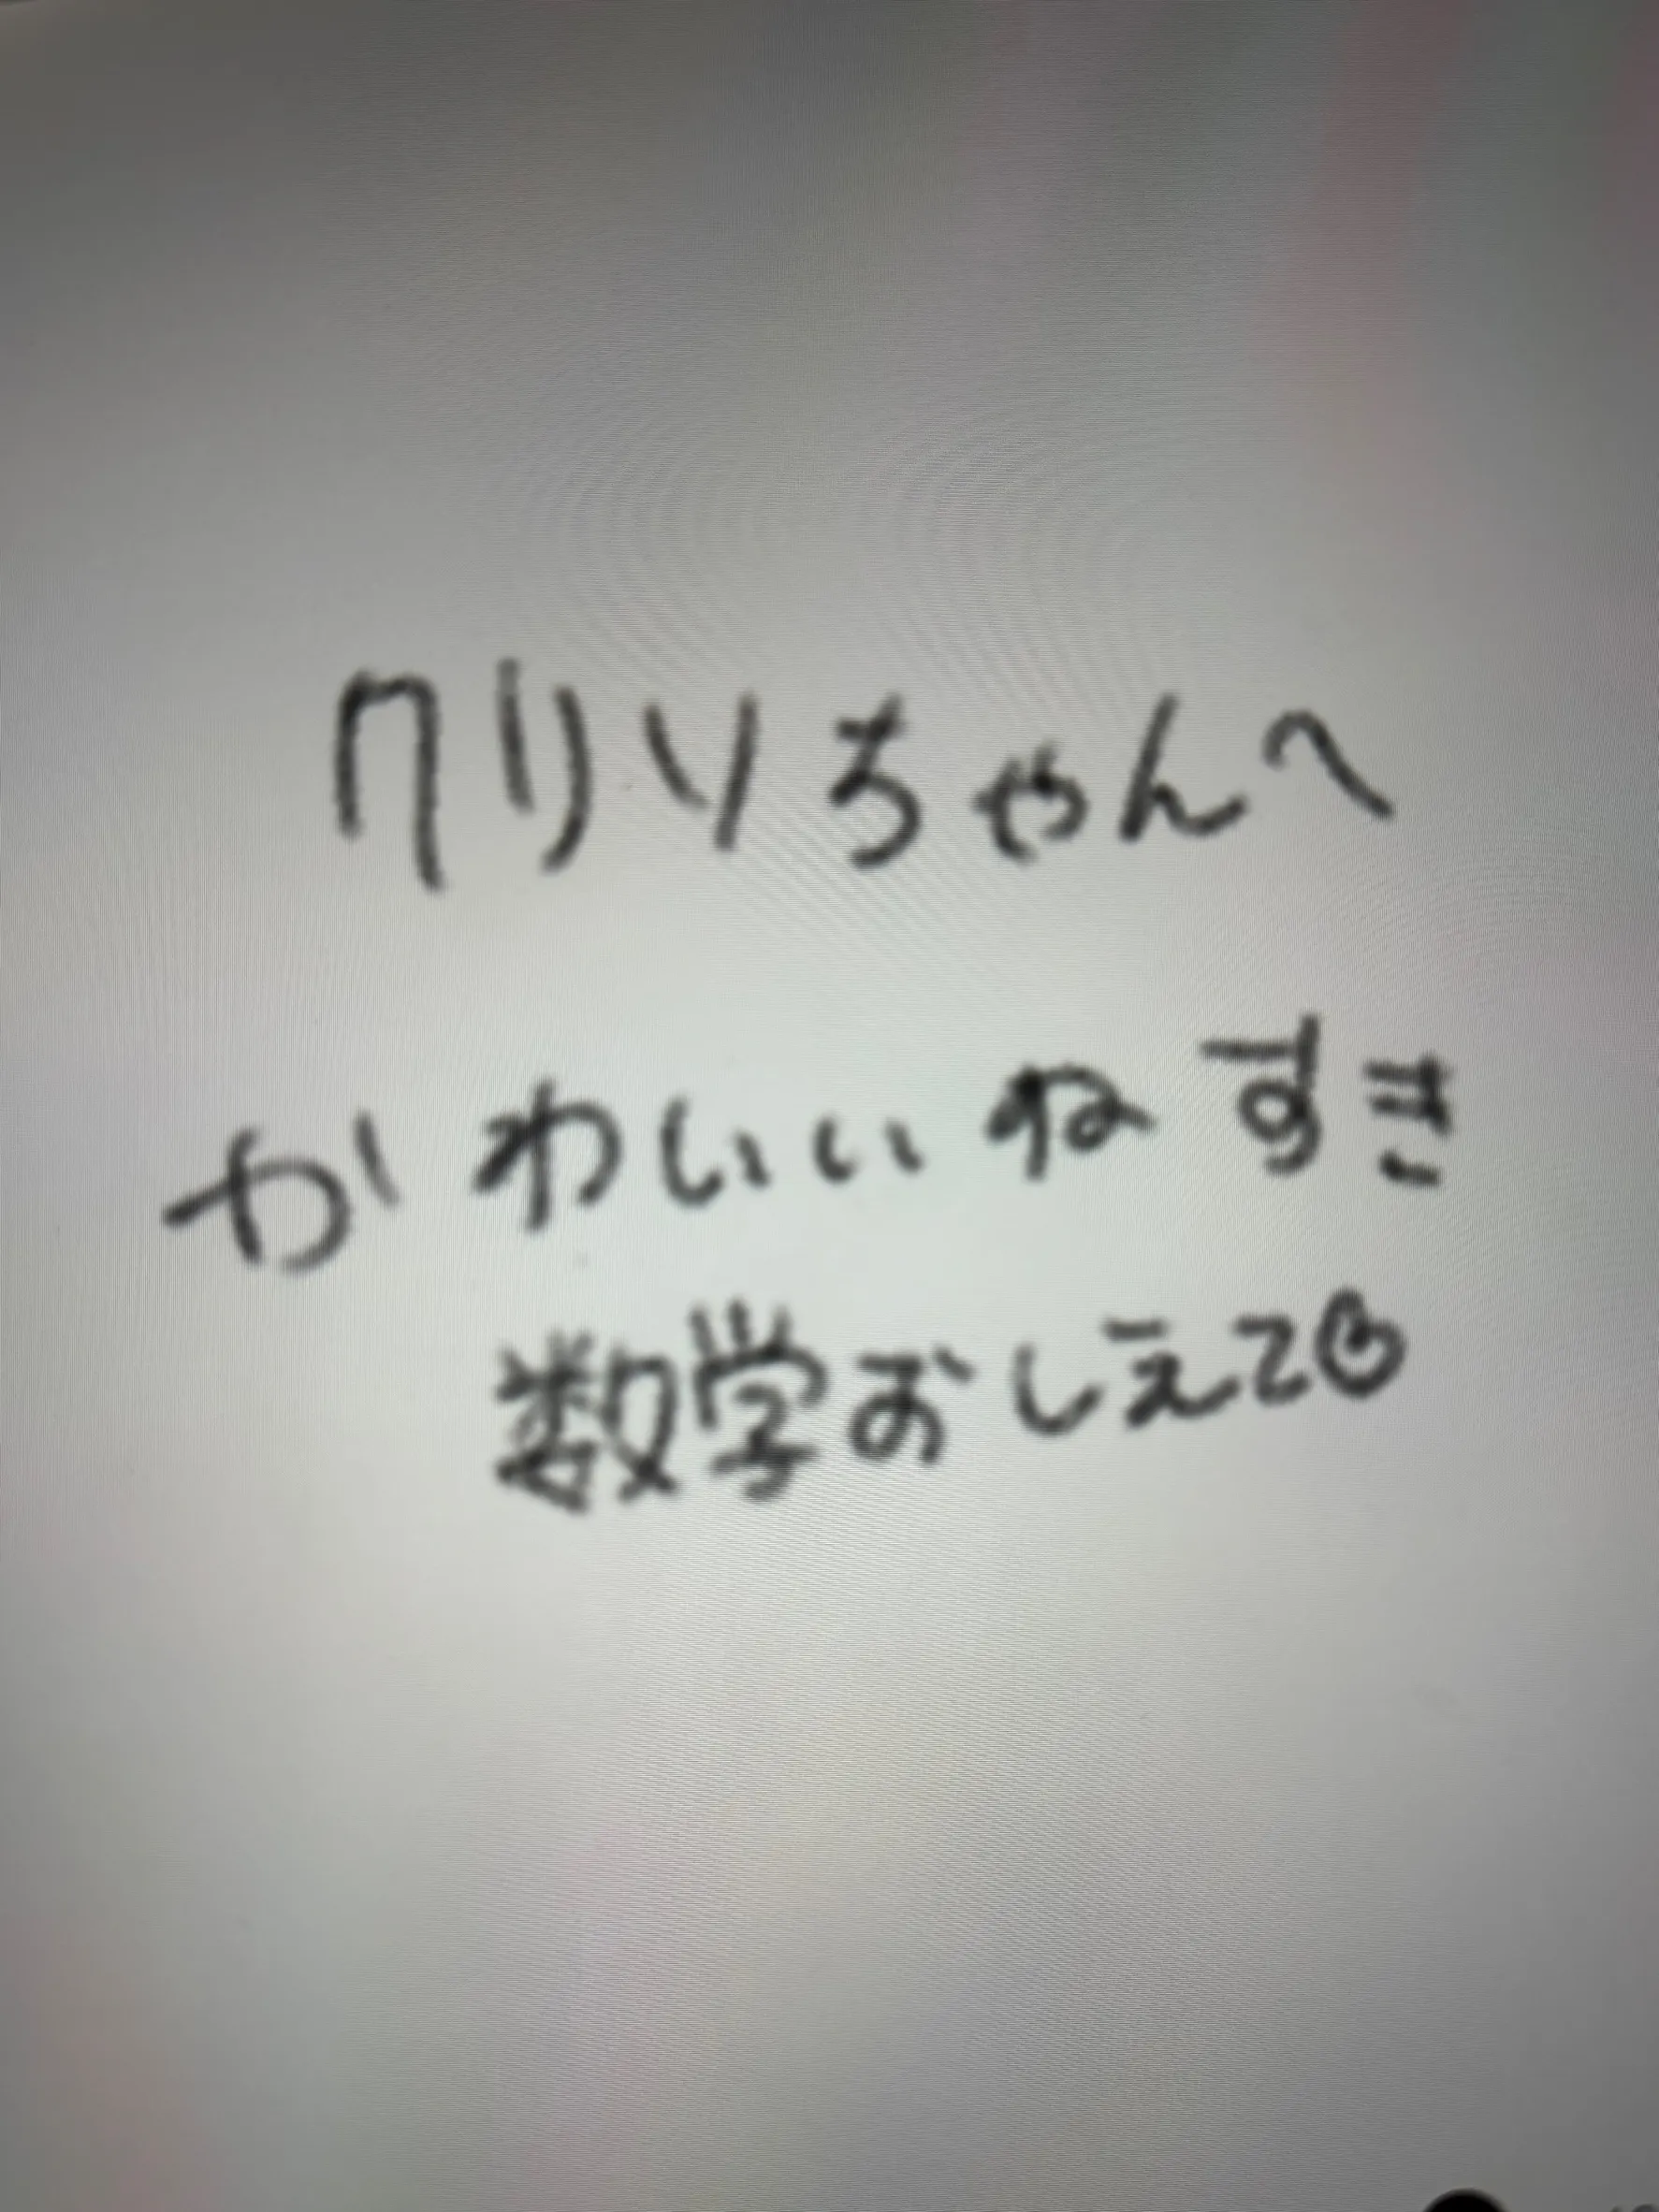 クリリちゃんへ
かわいいねすき
数学おしえて